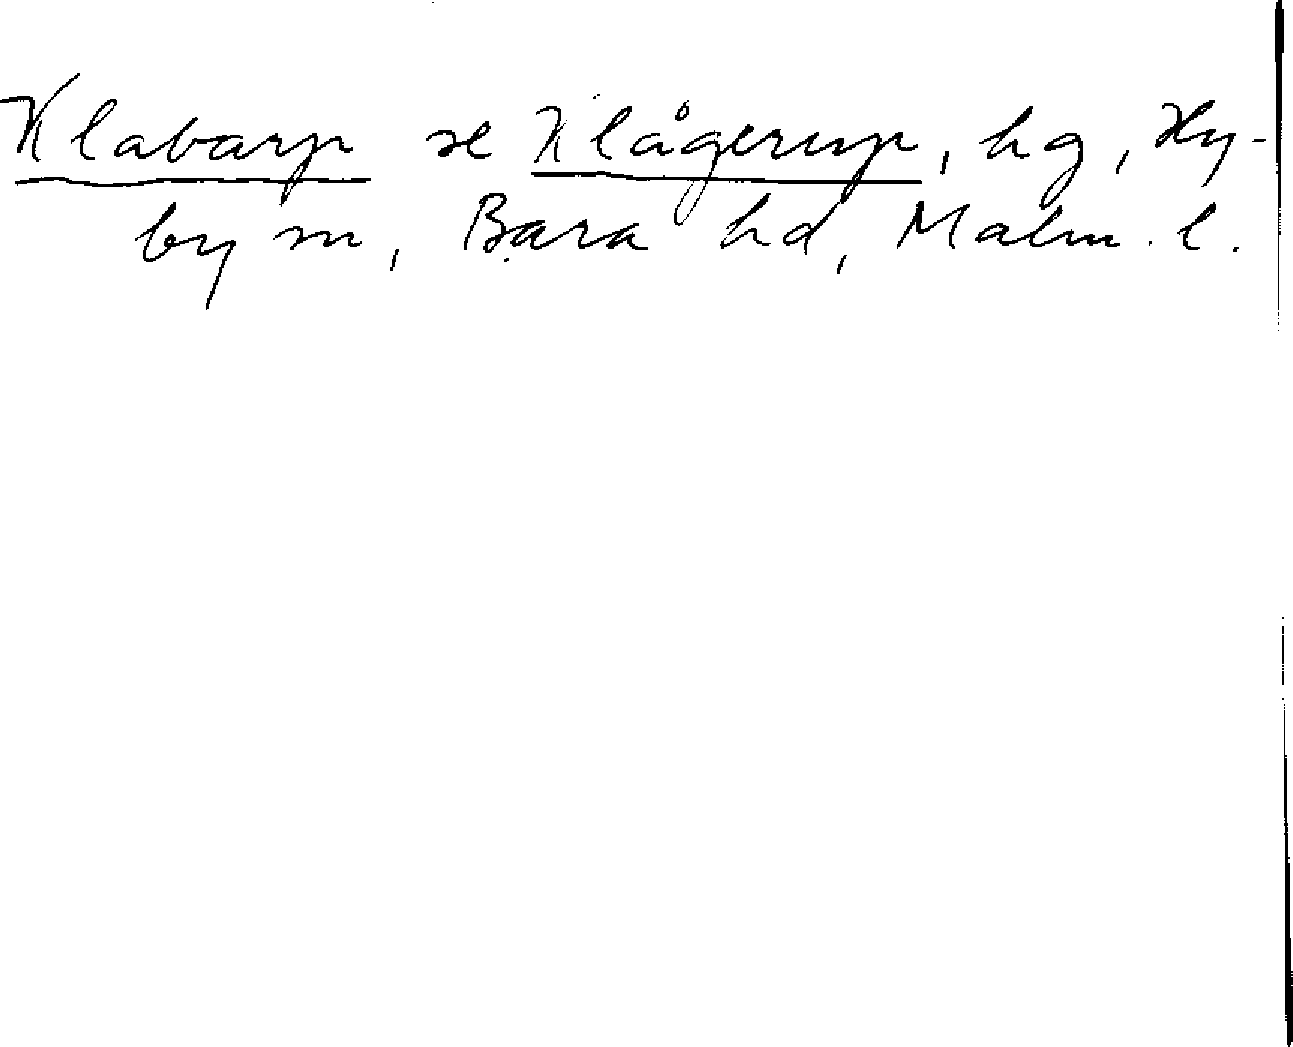 Klabarp se Klågerup, hg, Hy-
by sn, Bara hd, Malm. l.